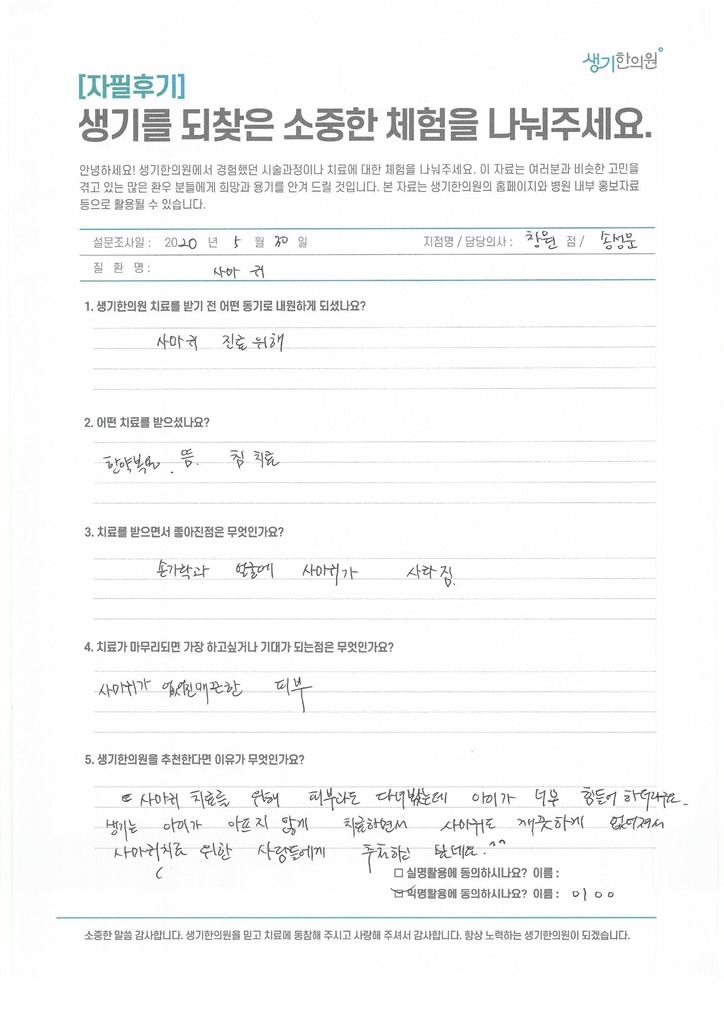 생기한의원
[자필후기]
생기를 되찾은 소중한 체험을 나눠주세요.
안녕하세요! 생기한의원에서 경험했던 시술과정이나 치료에 대한 체험을 나눠주세요. 이 자료는 여러분과 비슷한 고민을
겪고 있는 많은 환우 분들에게 희망과 용기를 안겨 드릴 것입니다. 본 자료는 생기한의원의 홈페이지와 병원 내부 홍보자료
등으로 활용될 수 있습니다.
설문조사일 : 2020 년 5 월 30 일 지점명 / 담당의사 : 창원 점 / 송성문
질 환 명 : 사마귀
1. 생기한의원 치료를 받기 전 어떤 동기로 내원하게 되셨나요?
사마귀 진료 위해
2. 어떤 치료를 받으셨나요?
한약복용. 뜸. 침 치료
3. 치료를 받으면서 좋아진점은 무엇인가요?
손가락과 얼굴에 사마귀가 사라짐.
4. 치료가 마무리되면 가장 하고싶거나 기대가 되는점은 무엇인가요?
사마귀가 없어진 매끈한 피부
5. 생기한의원을 추천한다면 이유가 무엇인가요?
사마귀 치료를 위해 피부과도 다녀봤는데 아이가 너무 힘들어 하더라구요.
생기는 아이가 아프지 않게 치료하면서 사마귀도 깨끗하게 없어져서
사마귀치료 위한 사람들에게 추천하고 싶네요.^^
□ 실명활용에 동의하시나요? 이름 :
□ 익명활용에 동의하시나요? 이름 : 이ㅇㅇ
소중한 말씀 감사합니다. 생기한의원을 믿고 치료에 동참해 주시고 사랑해 주셔서 감사합니다. 항상 노력하는 생기한의원이 되겠습니다.